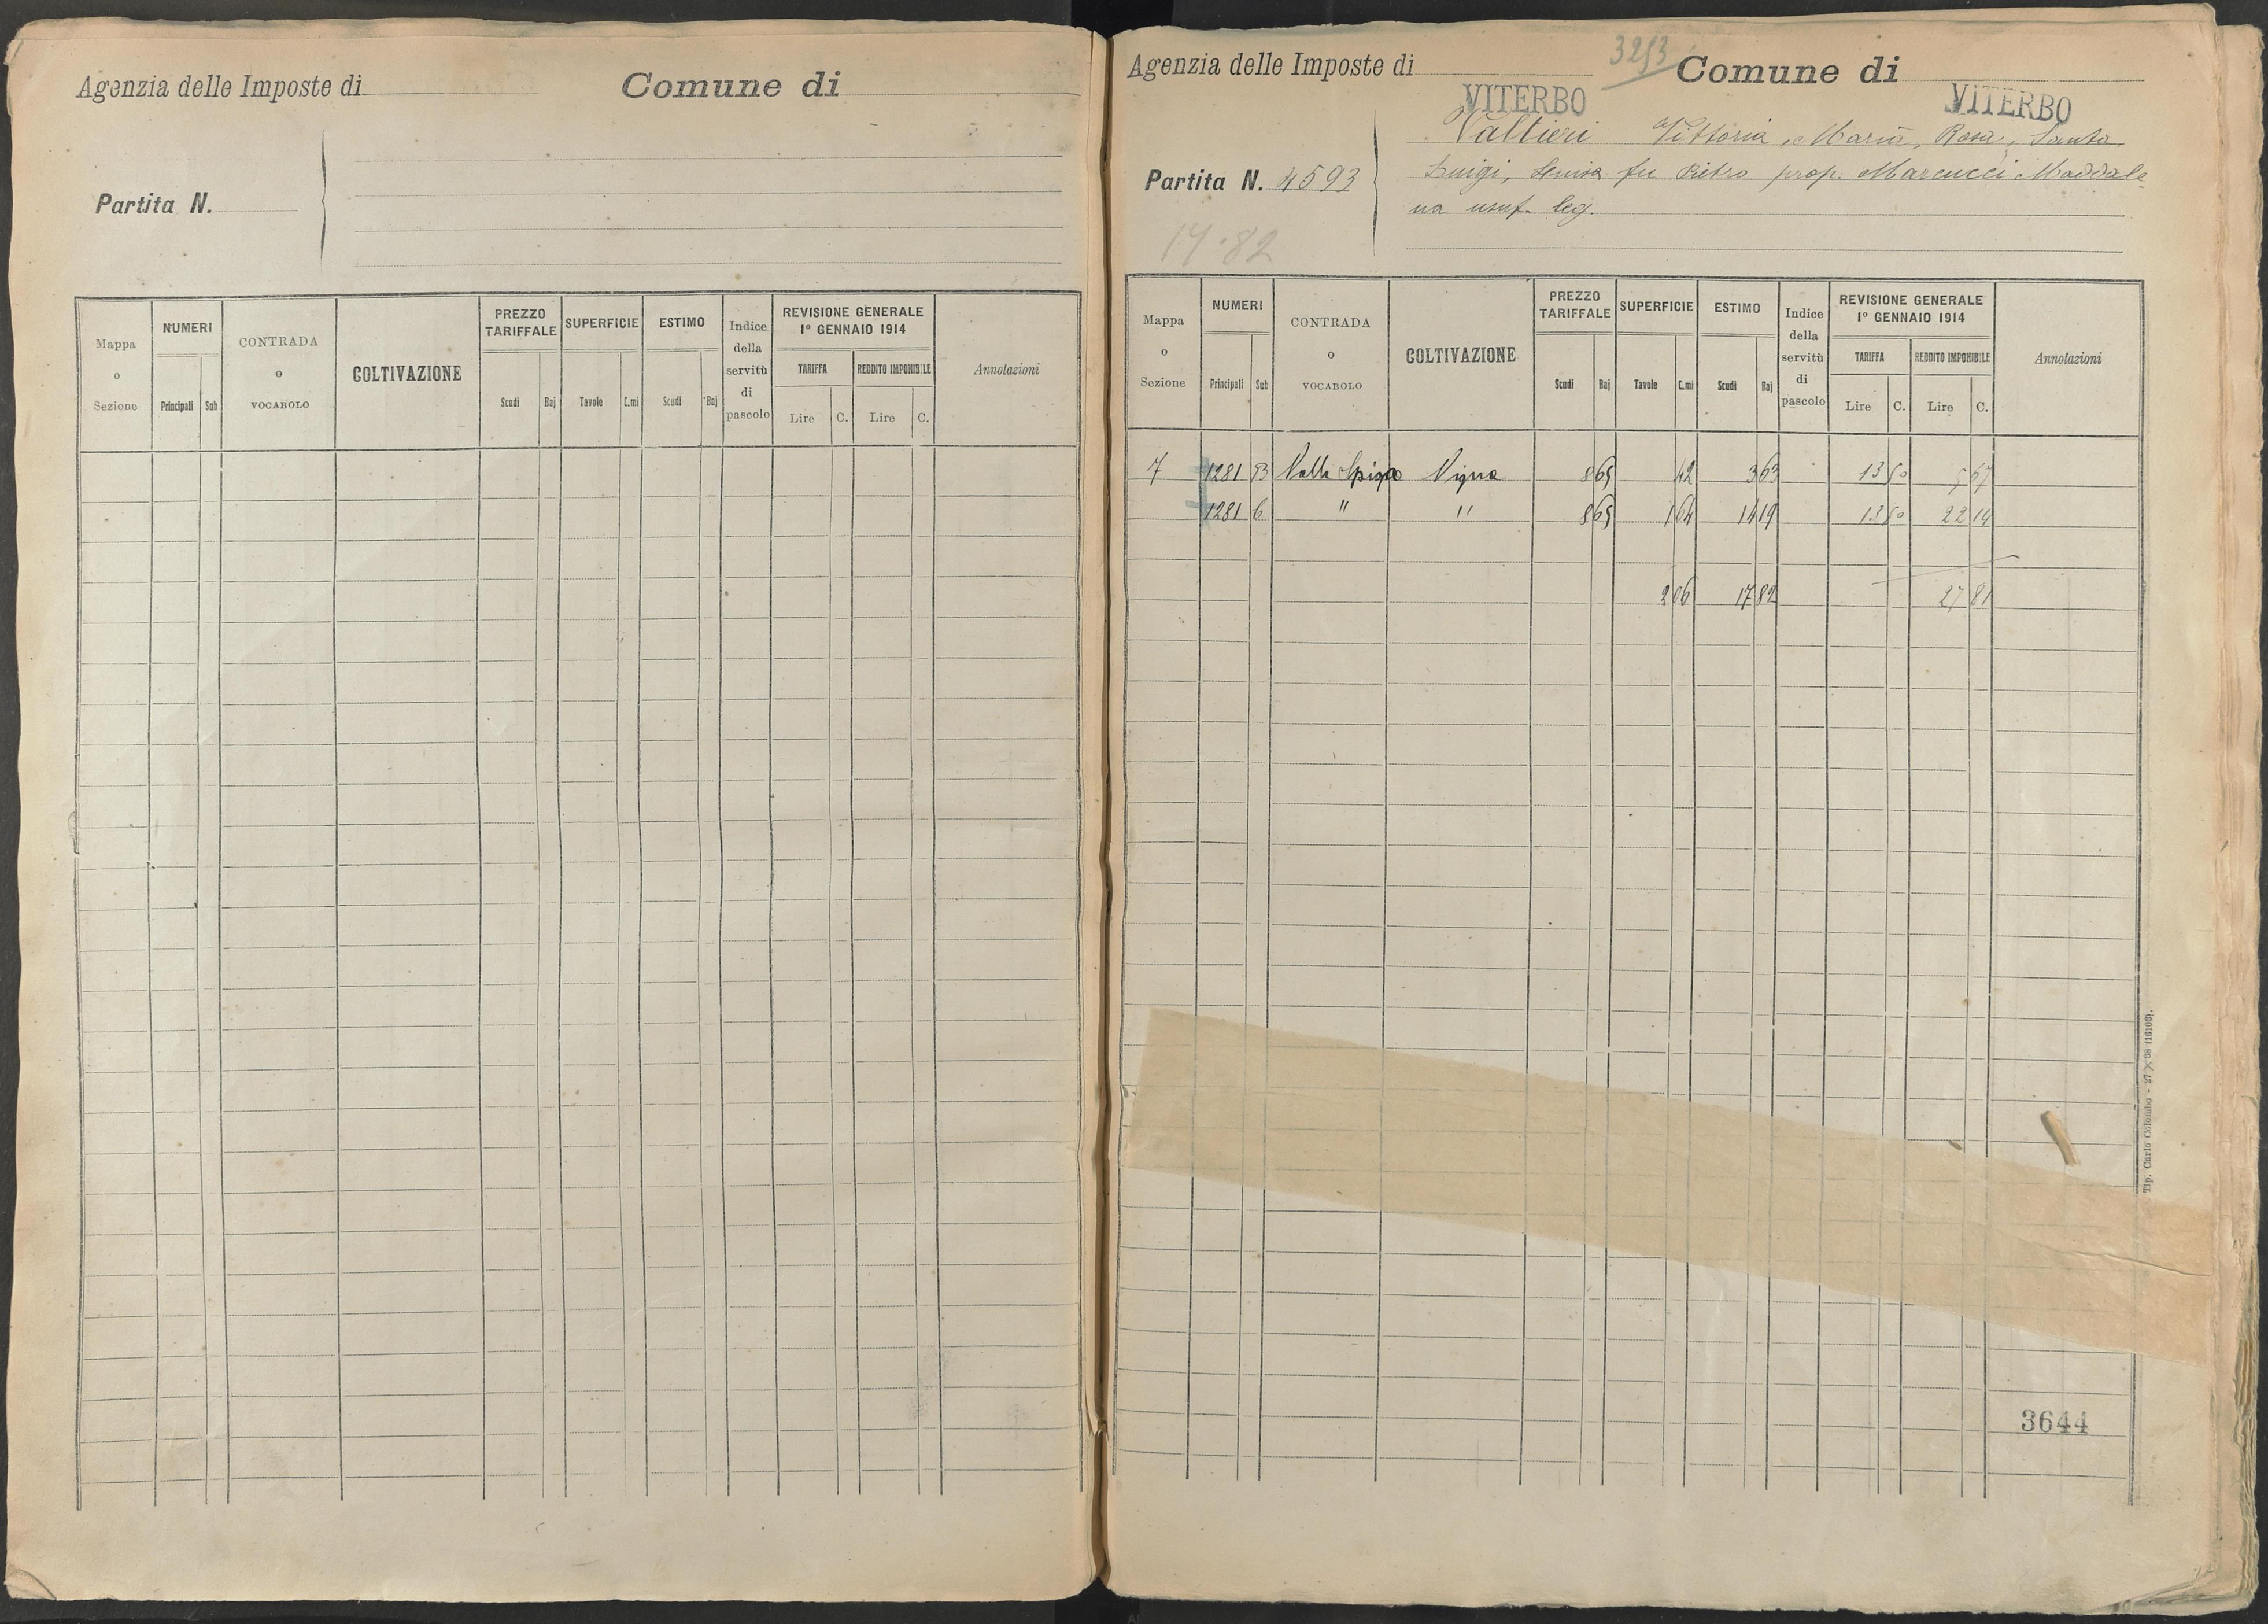 Agenzia delle Imposte di Comune di
Partita N.
Mappa o Sezione
NUMERI
Principali Sub
CONTRADA o VOCABOLO
COLTIVAZIONE
PREZZO TARIFFALE
Scudi Baj
SUPERFICIE
Tavole C.mi
ESTIMO
Scudi Baj
Indice della servitù di pascolo
REVISIONE GENERALE 1º GENNAIO 1914
TARIFFA REDDITO IMPONIBILE
Lire C. Lire C.
Annotazioni
3253
Agenzia delle Imposte di Comune di
VITERBO VITERBO
Valtieri Vittoria, Maria, Rosa, Santa
Partita N. 4593 Luigi, fu Pietro prop. Marcucci Maddale
na usuf. leg.
17.82
Mappa o Sezione
NUMERI
Principali Sub
CONTRADA o VOCABOLO
COLTIVAZIONE
PREZZO TARIFFALE
Scudi Baj
SUPERFICIE
Tavole C.mi
ESTIMO
Scudi Baj
Indice della servitù di pascolo
REVISIONE GENERALE 1º GENNAIO 1914
TARIFFA REDDITO IMPONIBILE
Lire C. Lire C.
Annotazioni
7 1281 B Valle Vigna 8 65 42 3 63 13 50 5 67
1281 6 " " 8 65 1 64 14 19 13 50 22 14
2 06 17 82 27 81
Tip. Carlo Colombo - 27 X 38 (16106).
3644